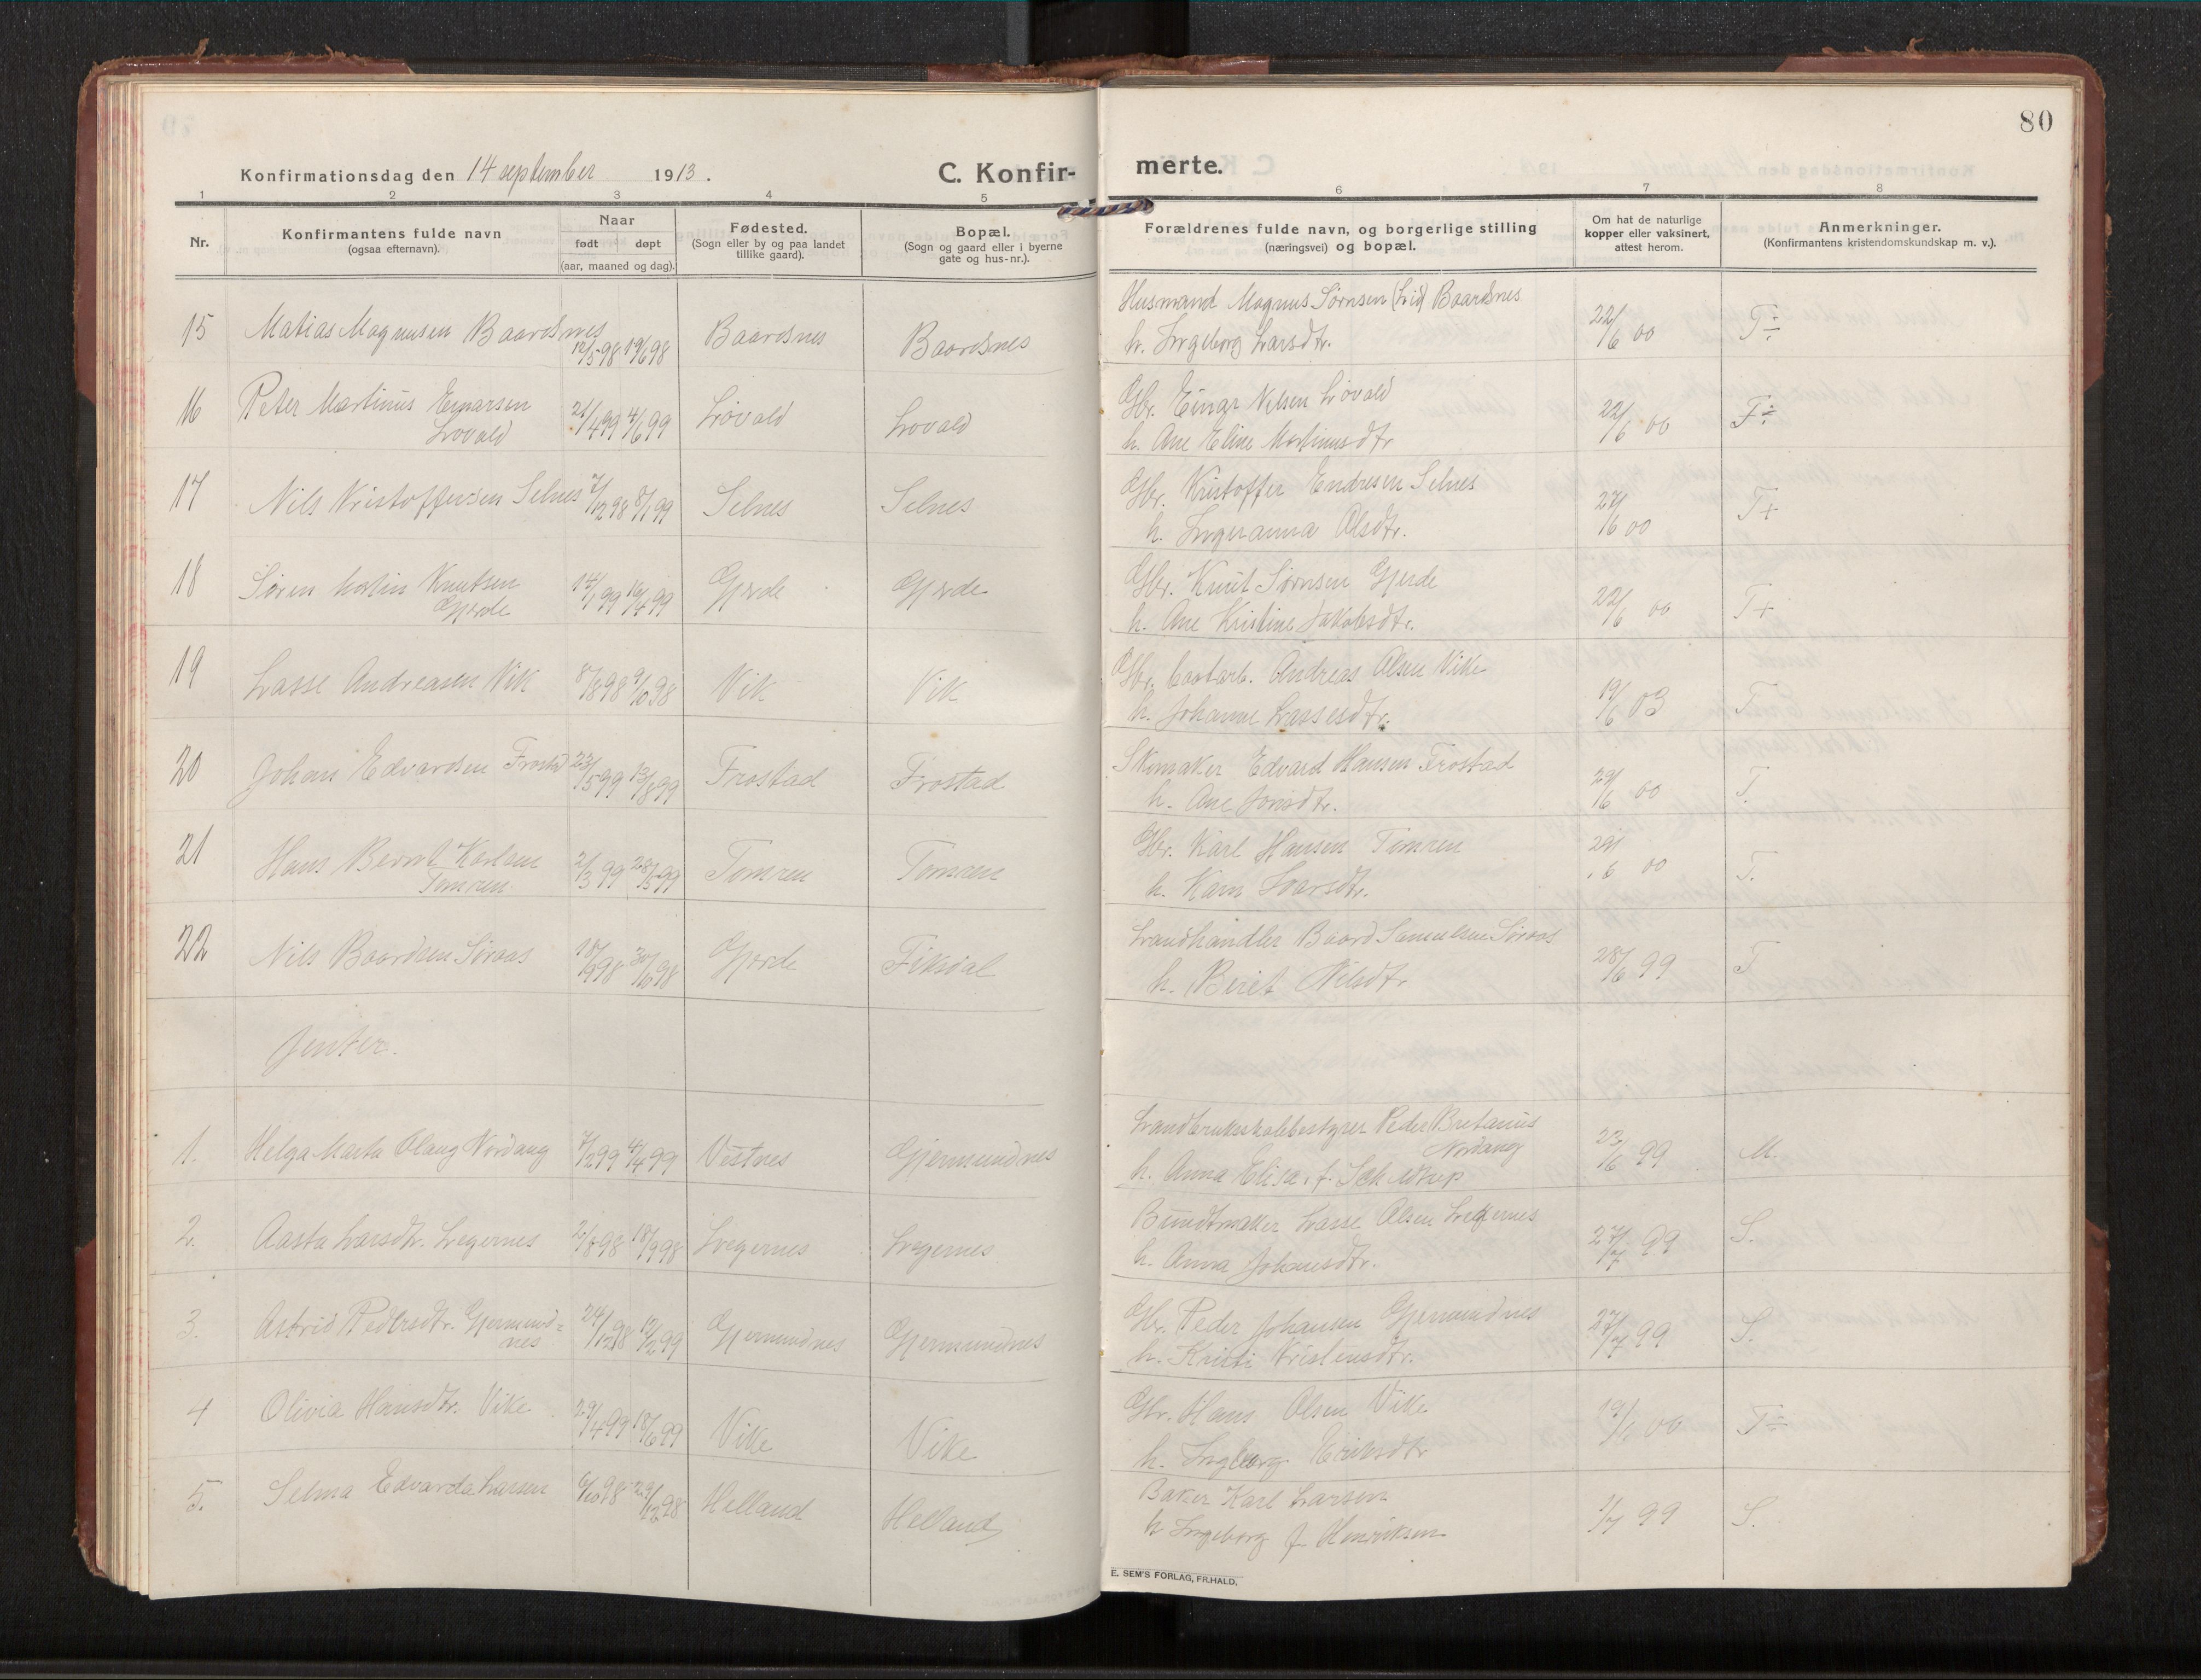 80
Konfirmationsdag den 14 september 1913.
C. Konfir-
merte.
1 2 3 4 5 6 7 8
Nr.
Konfirmantens fulde navn
(ogsaa efternavn).
Naar
født døpt
(aar, maaned og dag).
Fødested.
(Sogn eller by og paa landet
tillike gaard).
Bopæl.
(Sogn og gaard eller i byerne
gate og hus-nr.).
Forældrenes fulde navn, og borgerlige stilling
(næringsvei) og bopæl.
Om hat de naturlige
kopper eller vaksinert,
attest herom.
Anmerkninger.
(Konfirmantens kristendomskundskap m. v.).
Husmand Magnus Sørnsen Baardsnes
15 Matias Magnusen Baardsnes 12/5 98 19/6 98 Baardsnes Baardsnes 22/6 00 T÷
h. Ingeborg Larsdtr.
Gbr. Einar Nilsen Løvald
16 Peter Martinus Einarsen 21/4 99 4/6 99 Løvald Lovald 22/6 00 T÷
Lovald
h. Ane Eline Martinusdtr
Gbr. Kristoffer Endresen Selnes
17 Nils Kristoffersen Selnes 7/12 98 8/1 99 Selnes Selnes 27/6 00 T+
h. Ingeranna Olsdtr.
Gbr. Knut Sørnsen Gjerde
18 Søren Martin Knutsen 14/1 99 16/4 99 Gjerde Gjerde 22/6 00 T+
Gjerde
h. Ane Kristine Jakobsdtr.
Gbr. baatarb. Andreas Olsen Vike
19 Lasse Andreasen Vik 8/8 98 9/10 98 Vik Vik 19/6 03 T
h. Johanne Lassesdtr.
Skomaker Edvard Hansen Frostad
20 Johan Edvardsen Frostad 23/5 99 13/8 99 Frostad Frostad 29/6 00 T.
h. Ane Jonsdtr.
Gbr. Karl Hansen Tomren
21 Hans Bernt Karlsen 2/3 99 28/5 99 Tomren Tomren 29/6 00 T.
Tomren
h. Karn Ivarsdtr.
Landhandler Baard Samuelsen Søraas
22 Nils Baardsen Søraas 18/9 98 30/10 98 Gjerde Fiksdal 28/6 99 T
h. Beret Nilsdtr.
Jenter.
Landbruksskolebestyrer Peder Bretanus
Nordang
1. Helga Marta Olaug Nordang 7/2 99 4/4 99 Vestnes Gjermundnes 23/6 99 M.
h. Anna Elisa, f.
Bundtmaker Lasse Olsen Legernes
2. Aasta Larsdtr. Legernes 2/8 98 18/9 98 Legernes Legernes 27/7 99 S.
h. Anna Johansdtr.
Gbr. Peder Johansen Gjermundnes
3. Astrid Pedersdtr. Gjermund= 24/12 98 12/2 99 Gjermundnes Gjermundnes 27/7 99 S.
nes
h. Kristi Kristensdtr.
Gbr. Hans Olsen Vike
4 Olivia Hansdtr. Vike 29/4 99 18/6 99 Vike Vike 19/6 00 T÷
h. Ingeborg Eriksdtr
Baker Karl Larsen
5. Selma Edvarda Larsen 6/10 98 29/12 98 Helland Helland 1/7 99 S.
h Ingeborg f. Henriksen
E. SEM'S FORLAG, FR.HALD.